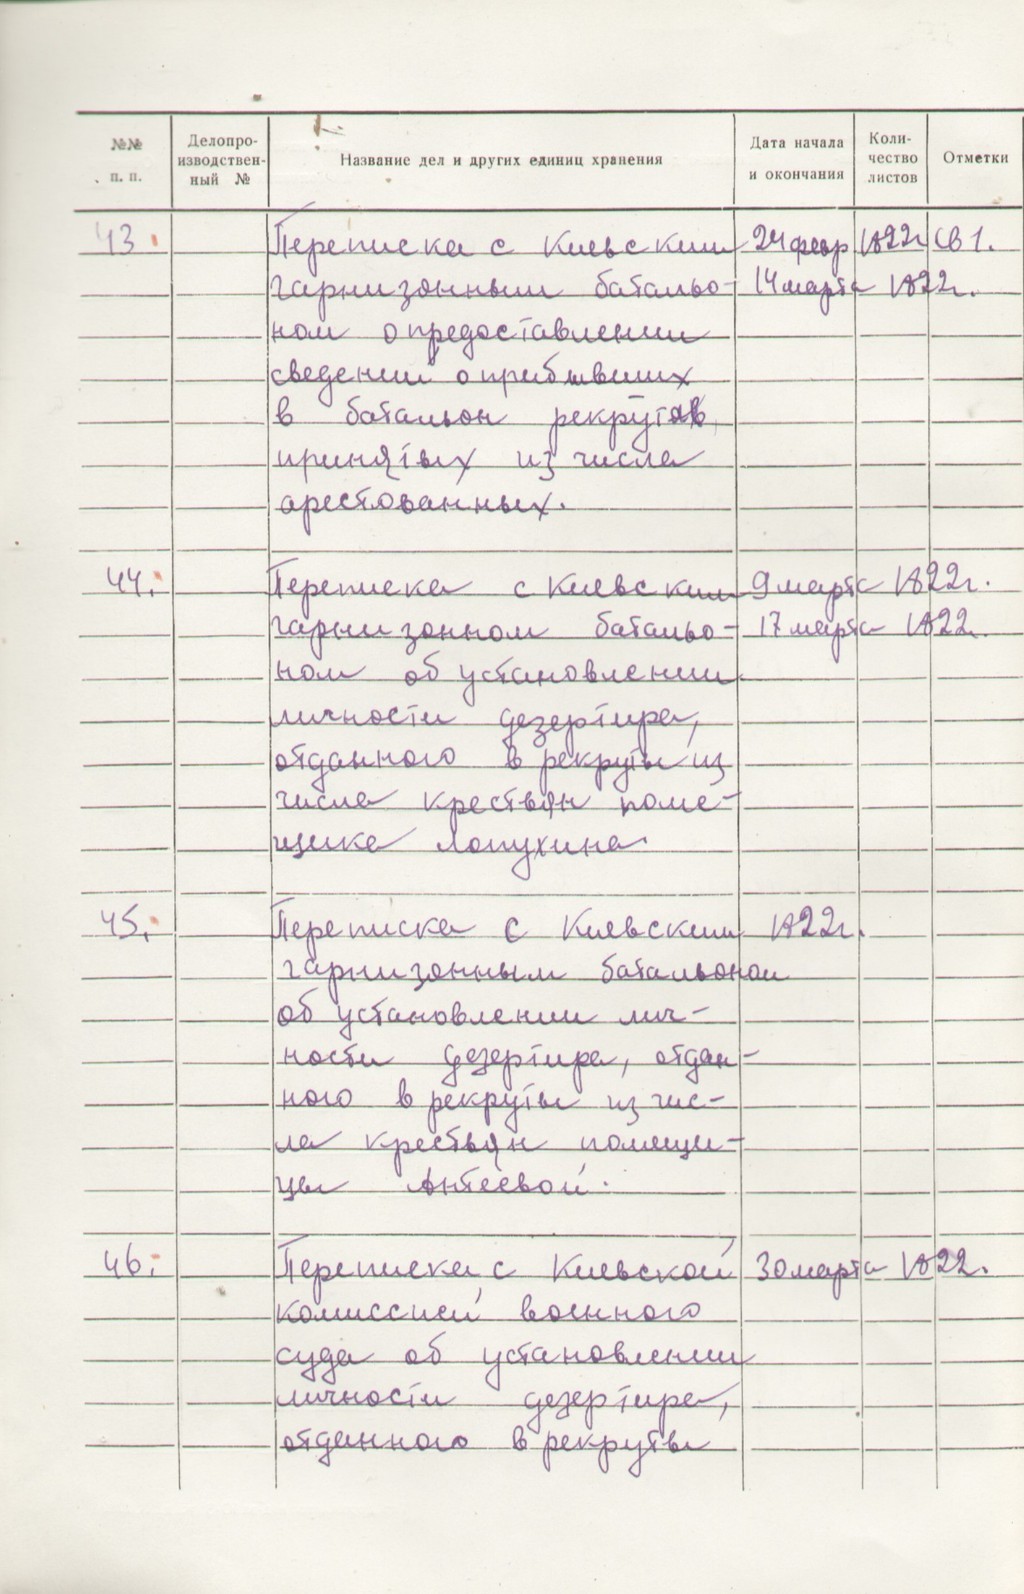 №№ п. п.
Делопроизводственный №
Название дел и других единиц хранения
Дата начала и окончания
Количество листов
Отметки
43. Переписка с Киевским 24 февр 1822г св 1.
гарнизонным батальо- 14 марта 1822г.
ном о предоставлении
сведений о прибывших
в батальон рекрутов,
принятых из числа
арестованных.
44. Переписка с Киевским 9 марта 1822г.
гарнизонном батальо- 17 марта 1822.
ном об установлении
личности дезертира,
отданного в рекруты из
числа крестьян поме-
щика Лопухина.
45. Переписка с Киевским 1822г.
гарнизонным батальоном
об установлении лич-
ности дезертира, отдан-
ного в рекруты из чис-
ла крестьян помещи-
цы Антеевой.
46. Переписка с Киевской 30 марта 1822.
комиссией военного
суда об установлении
личности дезертира,
отданного в рекруты